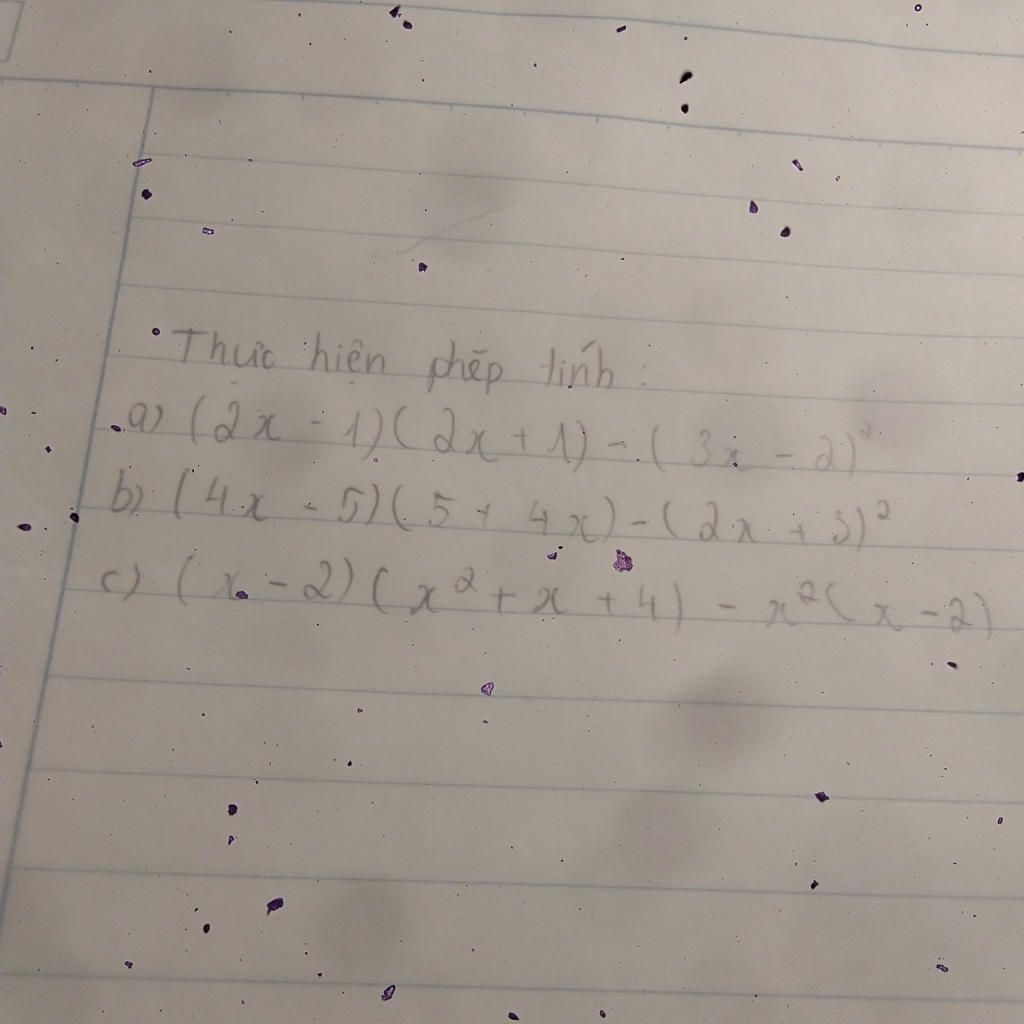 Thực hiện phép tính:
a) (2x - 1)(2x + 1) - (3x - 2)²
b) (4x - 5)(5 + 4x) - (2x + 3)²
c) (x - 2)(x² + x + 4) - x²(x - 2)